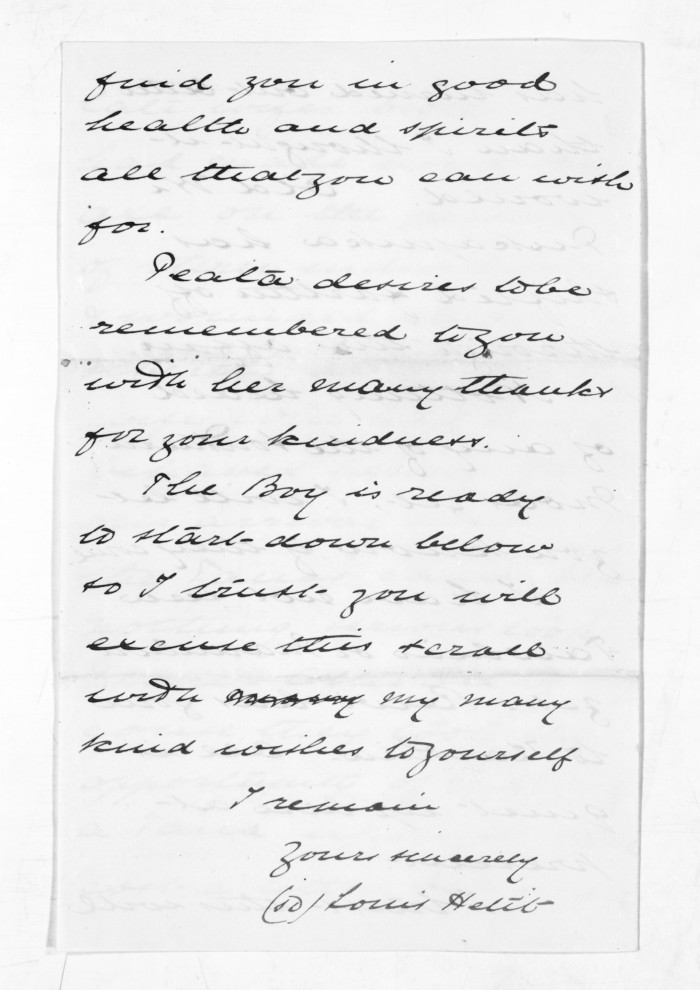 find you in good
health and spirits
all that you can wish
for.
Peata desires to be
remembered to you
with her many thanks
for your kindness.
The Boy is ready
to start down below
so I trust you will
excuse this scrall
with many my many
kind wishes to yourself
I remain
yours sincerely
(sd) Louis Hetét